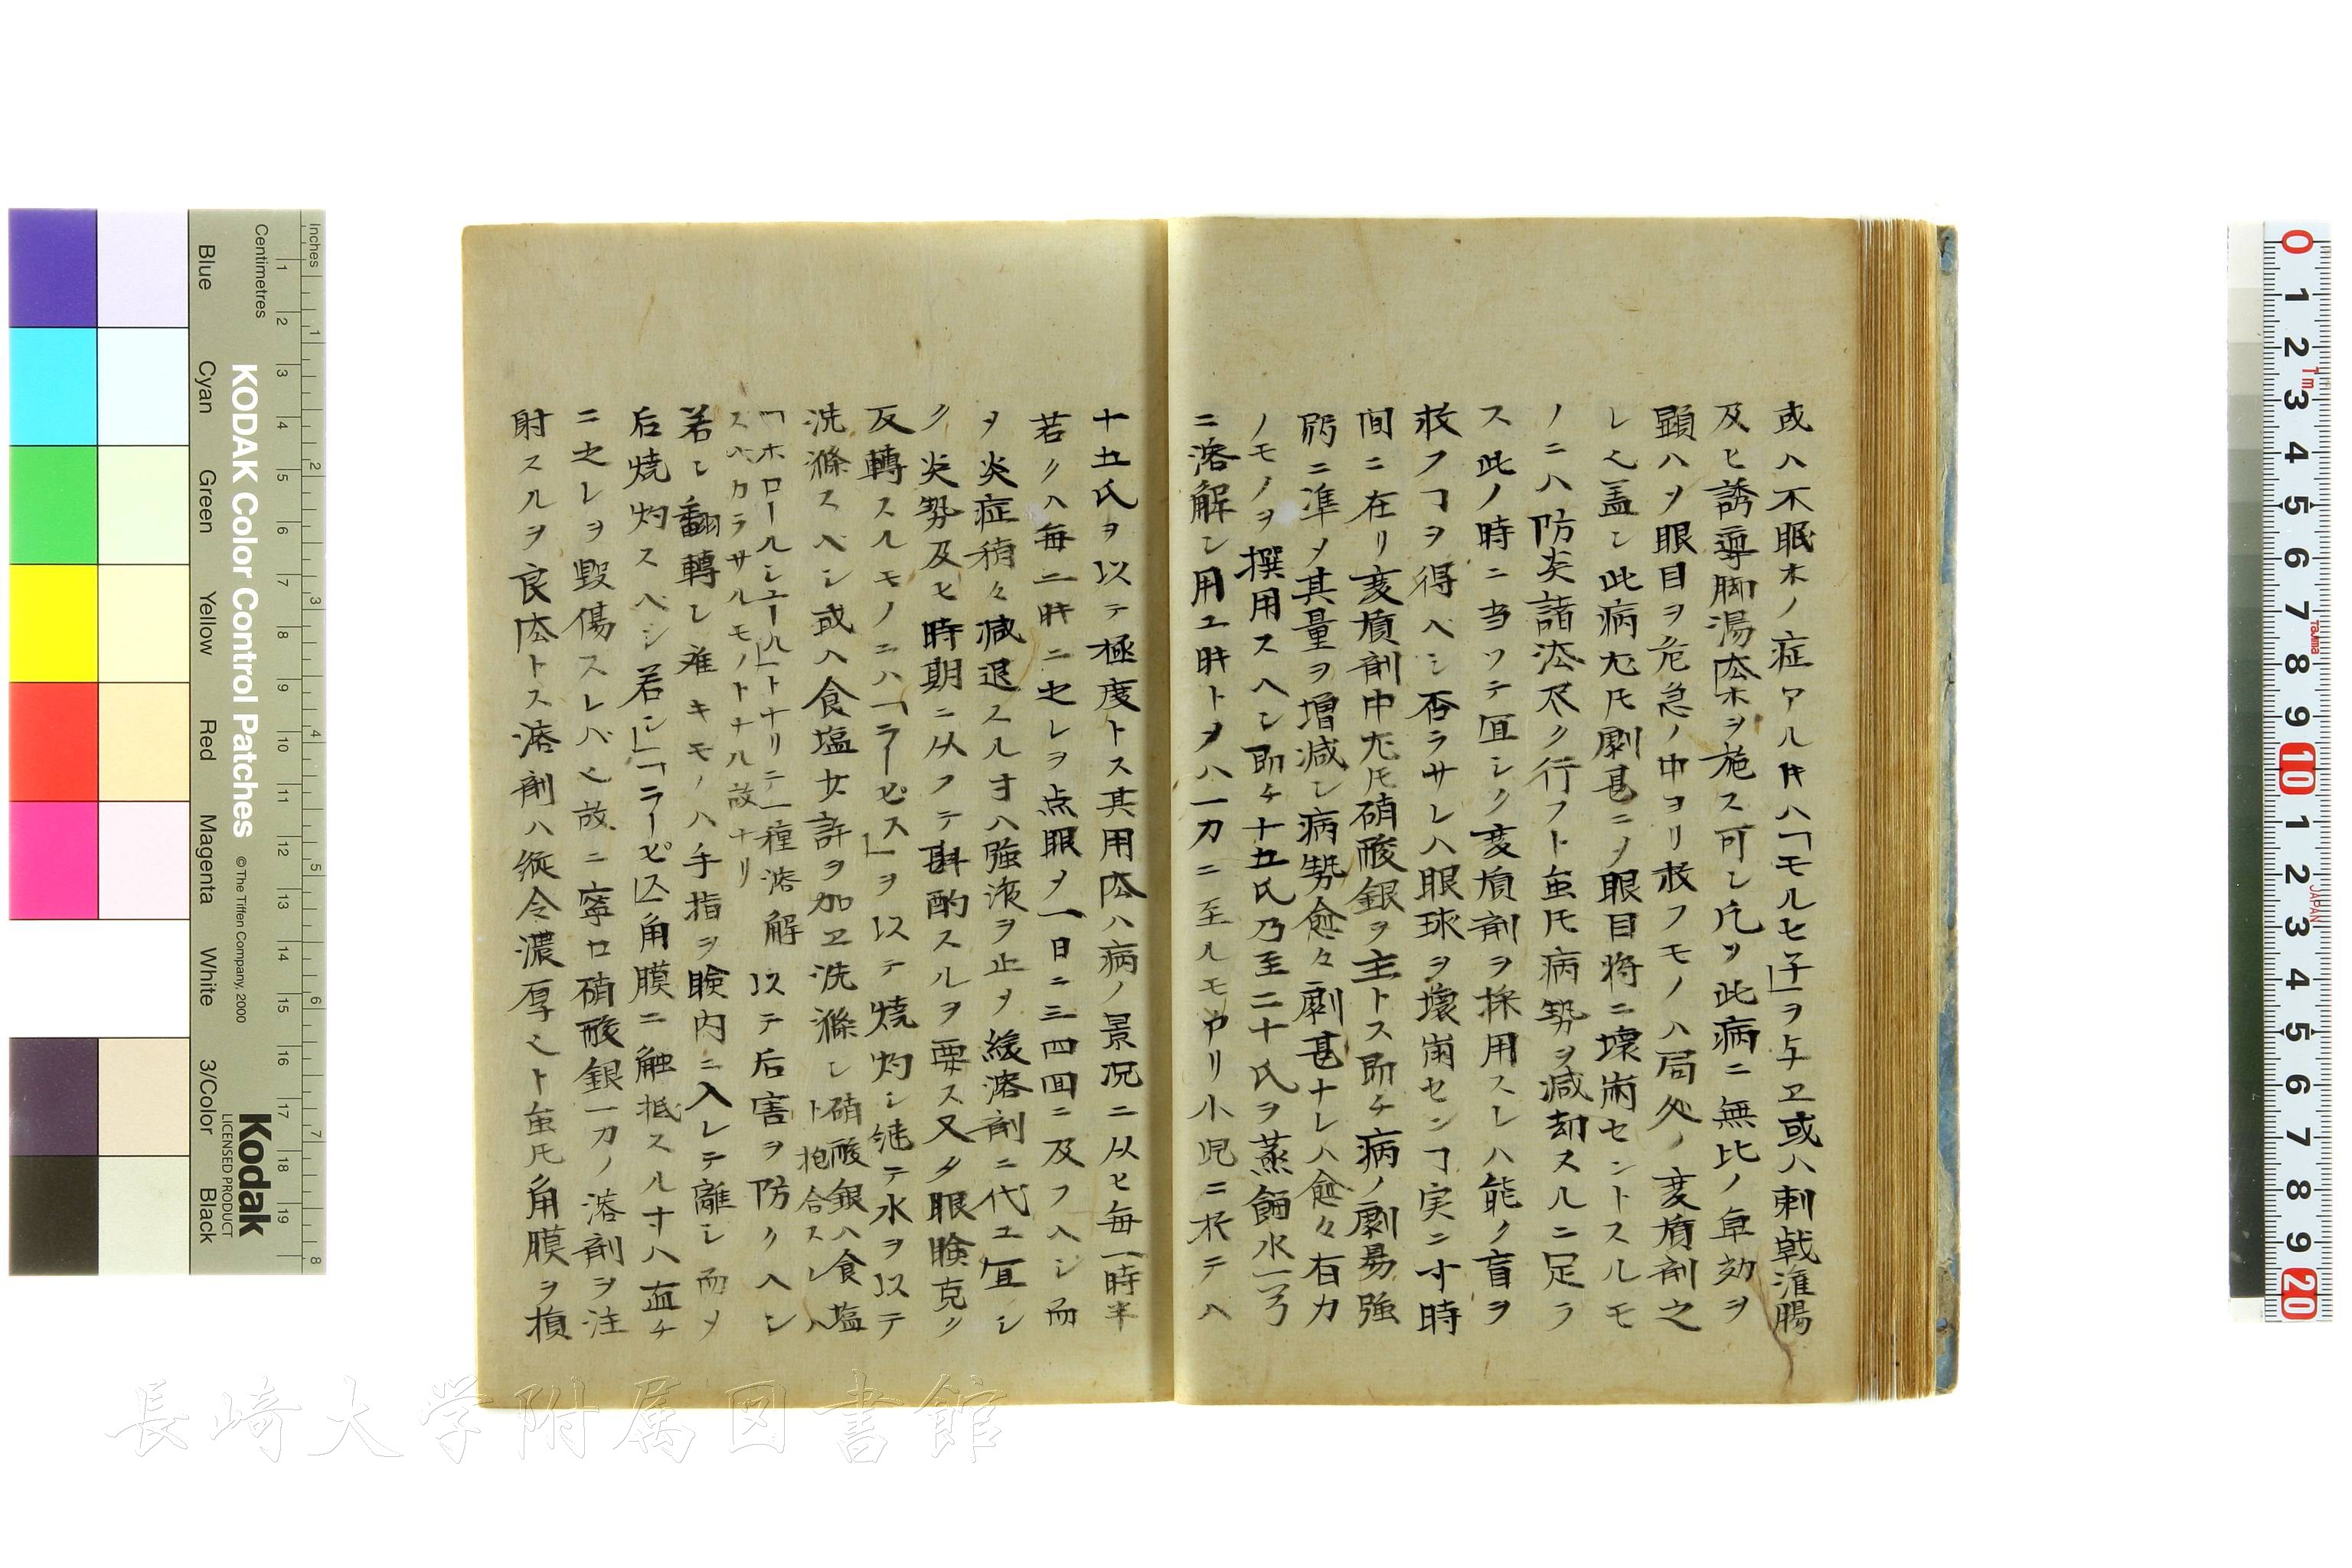 或ハ不眠ホノ症アル𪜈ハ「モルヒ子」ヲ与ヱ或ハ刺戟潅腸
及ヒ誘導脚湯㳒ホヲ施ス可シ凡ソ此病ニ無比ノ卓効ヲ
顕ハヲ眼目ヲ危急ノ中ヨリ救フモノハ局処ノ変質剤之
レ也盖シ此病尤𪜈劇甚ニメ眼目将ニ壊崩セントスルモ
ノニハ防炎諸法尽ク行フト虽𪜈病勢ヲ減却スルニ足ラ
ス此ノ時ニ当ツテ宜シク変質剤ヲ採用スレハ能ク盲ヲ
救フヿヲ得ベシ否ラサレハ眼球ヲ壊崩センヿ実ニ寸時
間ニ在リ変質剤中尤𪜈硝酸銀ヲ主トス即チ病ノ劇易強
弱ニ準メ其量ヲ増減シ病勢愈々劇甚ナレハ愈々有力
ノモノヲ撰用スヘシ即チ十五氏乃至二十氏ヲ蒸餾水一弓
ニ溶解シ用ユ時トメハ一刀ニ至ルモアリ小児ニ於テハ
十五氏ヲ以テ極度トス其用㳒ハ病ノ景况ニ从ヒ毎一時半
若クハ毎二時ニ之レヲ点眼メ一日ニ三四回ニ及フヘシ而
ヲ炎症稍々減退スル寸ハ強液ヲ止メ緩溶剤ニ代ユ宜シ
ク炎勢及ヒ時期ニ从フテ斟酌スルヲ要ス又タ眼瞼克ク
反轉スルモノニハ「ラーピス」ヲ以テ焼灼シ継テ水ヲ以テ
洗滌スベシ或ハ食塩少許ヲ加ヱ洗滌シ硝酸銀ハ食塩
ト抱合スレハ
「ホロールシユール」トナリテ一種溶解
スベカラサルモノトナル故ナリ
以テ后害ヲ防クヘシ
若シ翻轉シ难キモノハ手指ヲ瞼内ニ入レテ離シ而メ
后焼灼スベシ若シ「ラーピス」角膜ニ触抵スル寸ハ直チ
ニ之レヲ毀傷スレバ也故ニ寧ロ硝酸銀一刀ノ溶剤ヲ注
射スルヲ良㳒トス溶剤ハ縦令濃厚也ト虽𪜈角膜ヲ損
長崎大学附属図書館
KODAK Color Control Patches
©The Tiffen Company, 2000
Kodak
LICENSED PRODUCT
Inches
Centimetres
Blue
Cyan
Green
Yellow
Red
Magenta
White
3/Color
Black
1 2 3 4 5 6 7 8 9 10 11 12 13 14 15 16 17 18 19
1 2 3 4 5 6 7 8
0 1 2 3 4 5 6 7 8 9 10 1 2 3 4 5 6 7 8 9 20
1m
Tajima
JAPAN